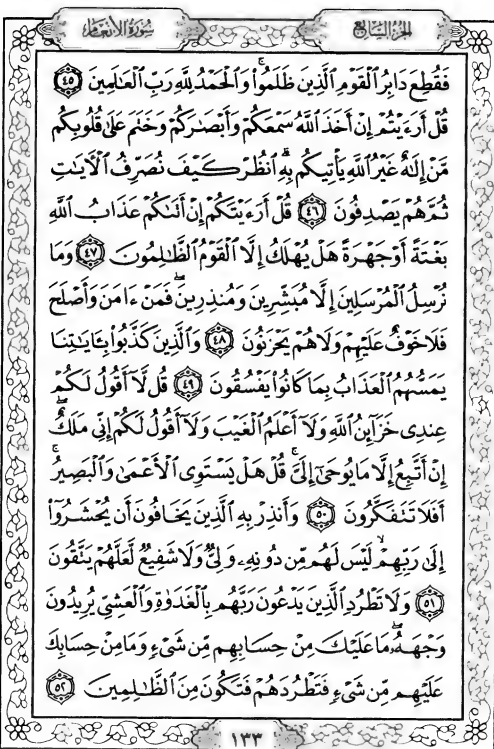 سُورَةُ الأَنعَامِ الجُزءُ السَّابِعُ
فَقُطِعَ دَابِرُ ٱلْقَوْمِ ٱلَّذِينَ ظَلَمُوا۟ ۚ وَٱلْحَمْدُ لِلَّهِ رَبِّ ٱلْعَٰلَمِينَ ٤٥
قُلْ أَرَءَيْتُمْ إِنْ أَخَذَ ٱللَّهُ سَمْعَكُمْ وَأَبْصَٰرَكُمْ وَخَتَمَ عَلَىٰ قُلُوبِكُم
مَّنْ إِلَٰهٌ غَيْرُ ٱللَّهِ يَأْتِيكُم بِهِ ۗ ٱنظُرْ كَيْفَ نُصَرِّفُ ٱلْءَايَٰتِ
ثُمَّ هُمْ يَصْدِفُونَ ٤٦ قُلْ أَرَءَيْتَكُمْ إِنْ أَتَىٰكُمْ عَذَابُ ٱللَّهِ
بَغْتَةً أَوْ جَهْرَةً هَلْ يُهْلَكُ إِلَّا ٱلْقَوْمُ ٱلظَّٰلِمُونَ ٤٧ وَمَا
نُرْسِلُ ٱلْمُرْسَلِينَ إِلَّا مُبَشِّرِينَ وَمُنذِرِينَ ۖ فَمَنْ ءَامَنَ وَأَصْلَحَ
فَلَا خَوْفٌ عَلَيْهِمْ وَلَا هُمْ يَحْزَنُونَ ٤٨ وَٱلَّذِينَ كَذَّبُوا۟ بِـَٔايَٰتِنَا
يَمَسُّهُمُ ٱلْعَذَابُ بِمَا كَانُوا۟ يَفْسُقُونَ ٤٩ قُل لَّآ أَقُولُ لَكُمْ
عِندِى خَزَآئِنُ ٱللَّهِ وَلَآ أَعْلَمُ ٱلْغَيْبَ وَلَآ أَقُولُ لَكُمْ إِنِّى مَلَكٌ ۖ
إِنْ أَتَّبِعُ إِلَّا مَا يُوحَىٰٓ إِلَىَّ ۚ قُلْ هَلْ يَسْتَوِى ٱلْأَعْمَىٰ وَٱلْبَصِيرُ ۚ
أَفَلَا تَتَفَكَّرُونَ ٥٠ وَأَنذِرْ بِهِ ٱلَّذِينَ يَخَافُونَ أَن يُحْشَرُوٓا۟
إِلَىٰ رَبِّهِمْ ۙ لَيْسَ لَهُم مِّن دُونِهِۦ وَلِىٌّ وَلَا شَفِيعٌ لَّعَلَّهُمْ يَتَّقُونَ
٥١ وَلَا تَطْرُدِ ٱلَّذِينَ يَدْعُونَ رَبَّهُم بِٱلْغَدَوٰةِ وَٱلْعَشِىِّ يُرِيدُونَ
وَجْهَهُۥ ۖ مَا عَلَيْكَ مِنْ حِسَابِهِم مِّن شَىْءٍ وَمَا مِنْ حِسَابِكَ
عَلَيْهِم مِّن شَىْءٍ فَتَطْرُدَهُمْ فَتَكُونَ مِنَ ٱلظَّٰلِمِينَ ٥٢
١٣٣